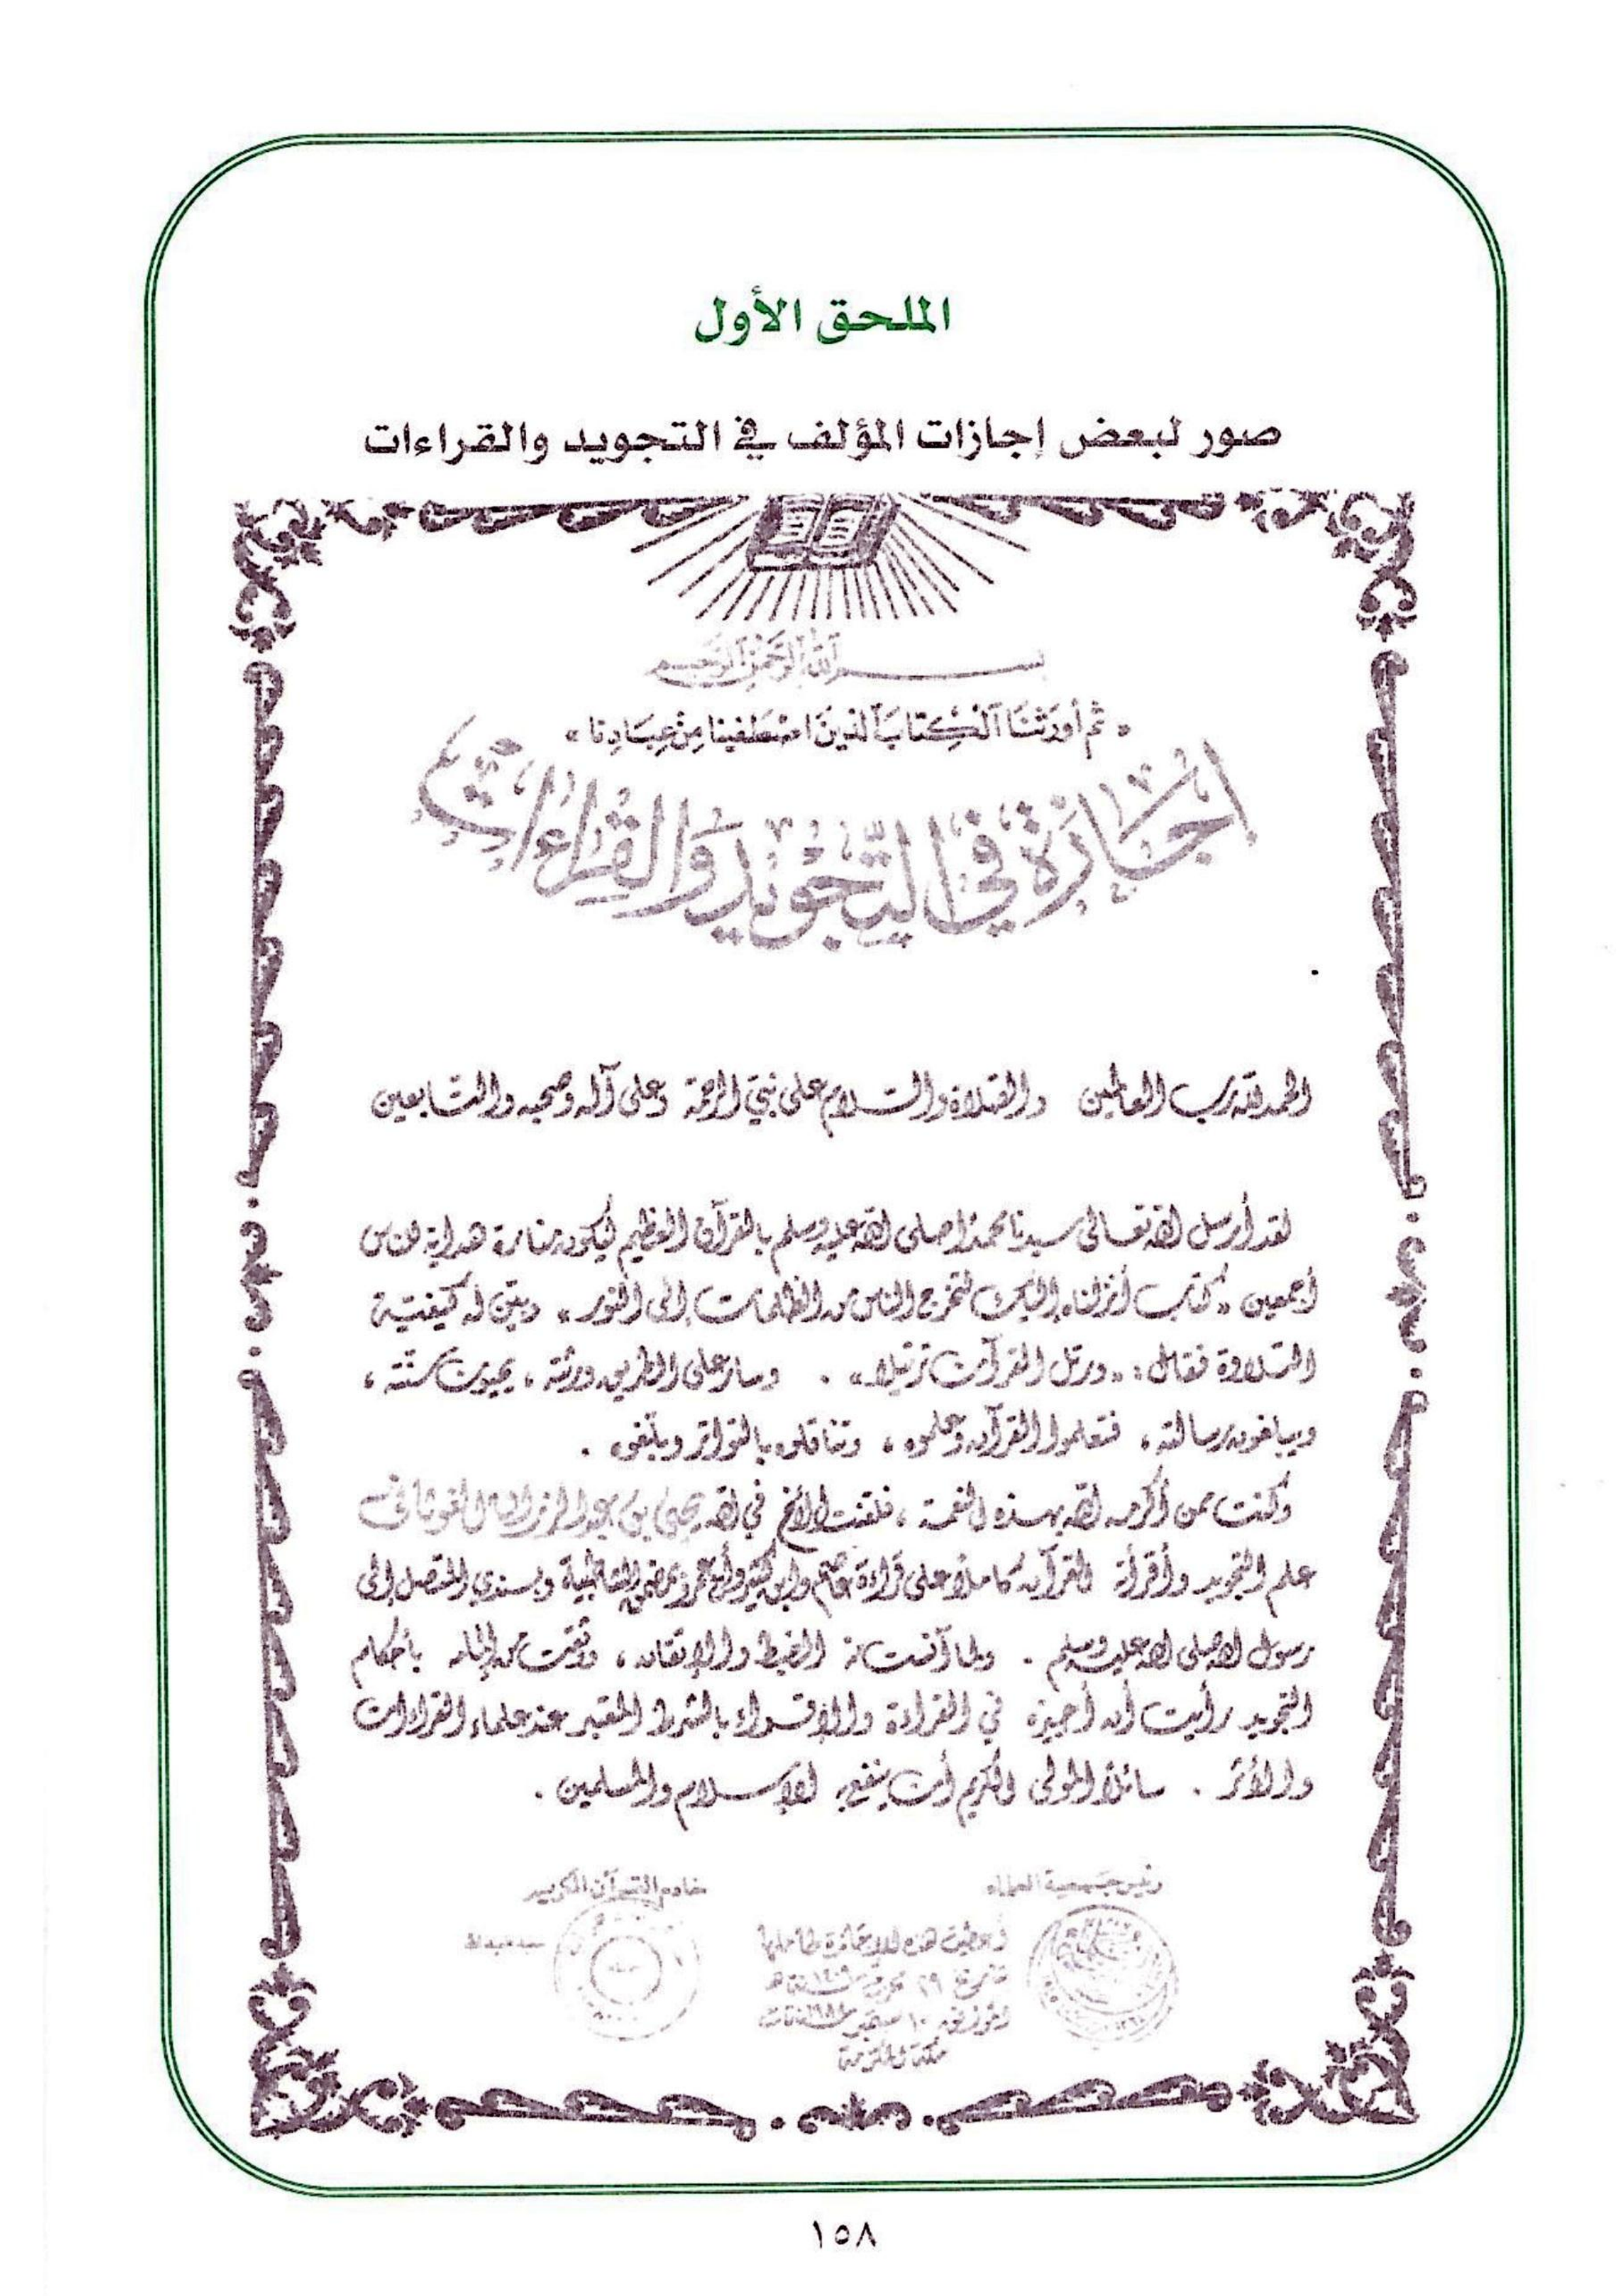 الملحق الأول
صور لبعض إجازات المؤلف في التجويد والقراءات
بسم الله الرحمن الرحيم
« ثم أورثنا الكتاب الذين اصطفينا من عبادنا »
إجازة في التجويد والقراءات
الحمد لله رب العالمين والصلاة والسلام على نبيّ الرحمة وعلى آله وصحبه والتابعين
لقد أرسل الله تعالى سيدنا محمدا صلى الله عليه وسلم بالقرآن العظيم ليكون منارة هداية للناس
أجمعين « كتاب أنزلناه إليك لتخرج الناس من الظلمات إلى النور » وبيّن له كيفية
التلاوة فقال : « ورتل القرآن ترتيلا » . وسار على الطريق ورثته ، يحيون سنته ،
ويبلغون رسالته ، فتعلموا القرآن وعلموه ، وتناقلوه بالتواتر
وكنت ممن أكرمه الله بهذه النعمة ، فلقنت الأخ في الله يحيى بن عبد الرزاق الغوثاني
علم التجويد وأقرأته القرآن كاملا على قراءة عاصم وابن كثير وأبي عمرو من الشاطبية وبسندي المتصل إلى
رسول الله صلى الله عليه وسلم . ولما آنست منه الضبط والإتقان ، بأحكام
التجويد رأيت أن أجيزه في القراءة والإقراء بالشرط المعتبر عند علماء القراءات
والأثر . سائلا المولى الكريم أن ينفع به الإسلام والمسلمين .
رئيس جمعية العلماء
خادم القرآن الكريم
أعطيت هذه الإجازة لحاملها
سيد عبد الله
مكة المكرمة
١٥٨